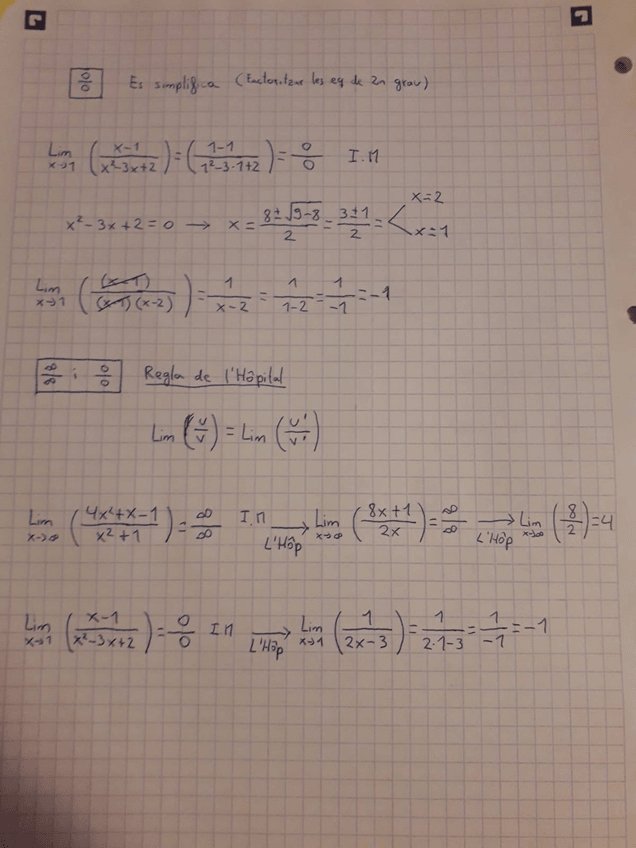 0/0 Es simplifica (Factoritzar les eq de 2n grau)
Lim x→1 (x-1 / x²-3x+2) = (1-1 / 1²-3·1+2) = 0/0 I.M
x²-3x+2=0 → x = 8±√9-8 / 2 = 3±1 / 2 = < x=2 x=1
Lim x→1 ((x-1) / (x-1)(x-2)) = 1 / x-2 = 1 / 1-2 = 1 / -1 = -1
∞/∞ i 0/0 Regla de l'Hôpital
Lim (u/v) = Lim (u'/v')
Lim x→∞ (4x²+x-1 / x²+1) = ∞/∞ I.M → L'Hôp Lim x→∞ (8x+1 / 2x) = ∞/∞ → L'Hôp Lim x→∞ (8/2) = 4
Lim x→1 (x-1 / x²-3x+2) = 0/0 IM → L'Hôp Lim x→1 (1 / 2x-3) = 1 / 2·1-3 = 1 / -1 = -1